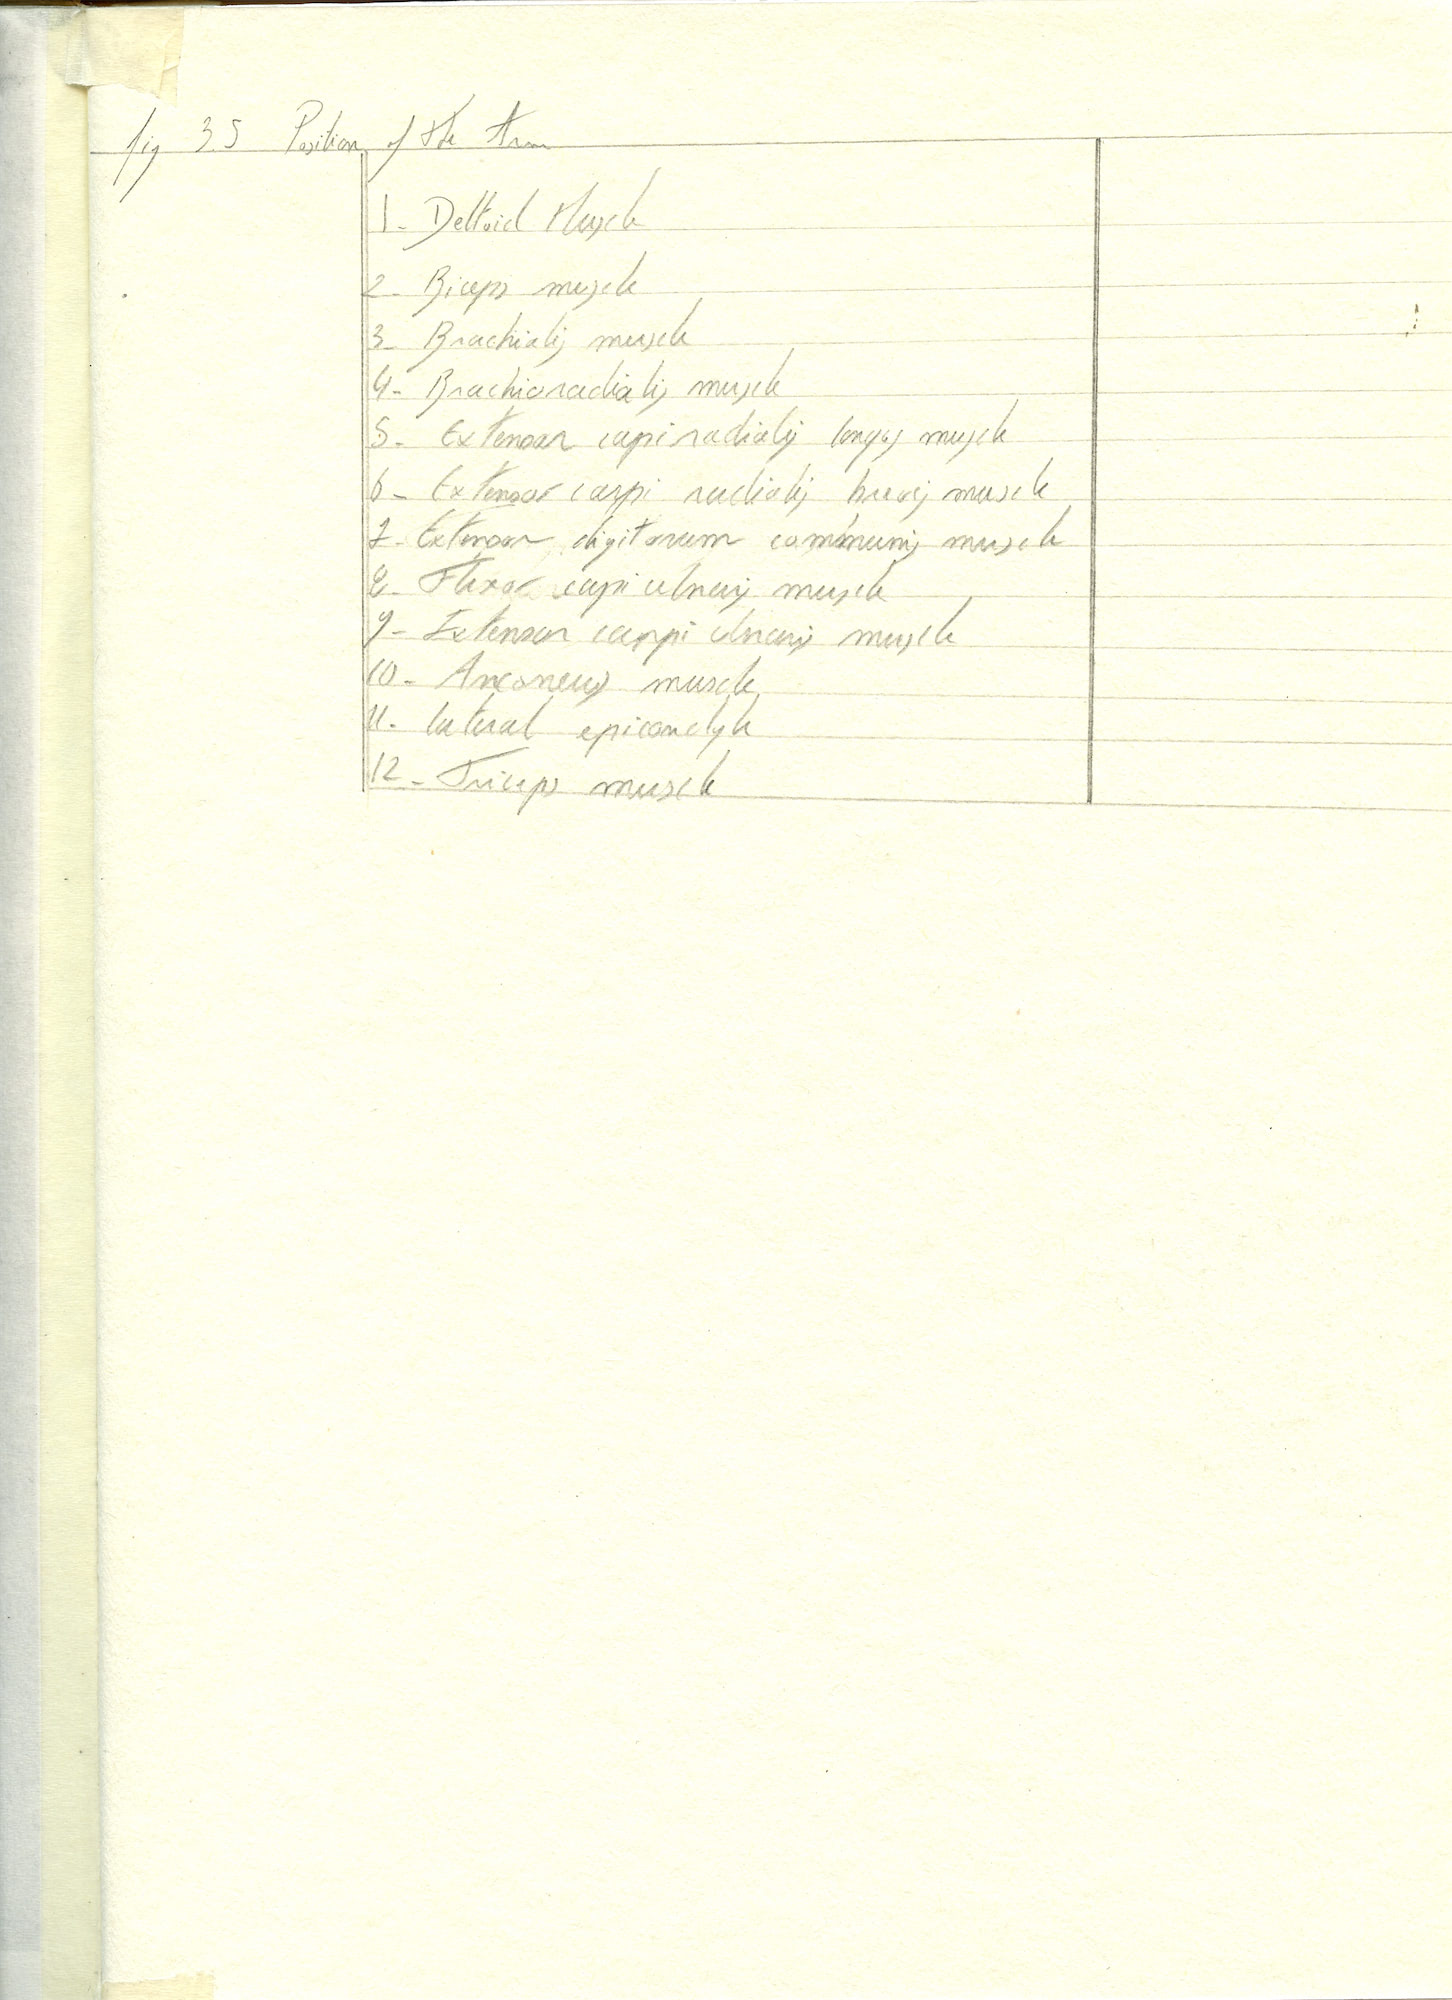 fig 3.5 Position of the Arm
1- Deltoid Muscle
2- Biceps muscle
3- Brachialis muscle
4- Brachioradialis muscle
5- Extensor capi radialis longus muscle
6- Extensor carpi radialis brevis muscle
7- Extensor digitorum communis muscle
8- Flexor capi ulnaris muscle
9- Extensor carpi ulnaris muscle
10- Anconeus muscle
11- lateral epicondyle
12- Triceps muscle